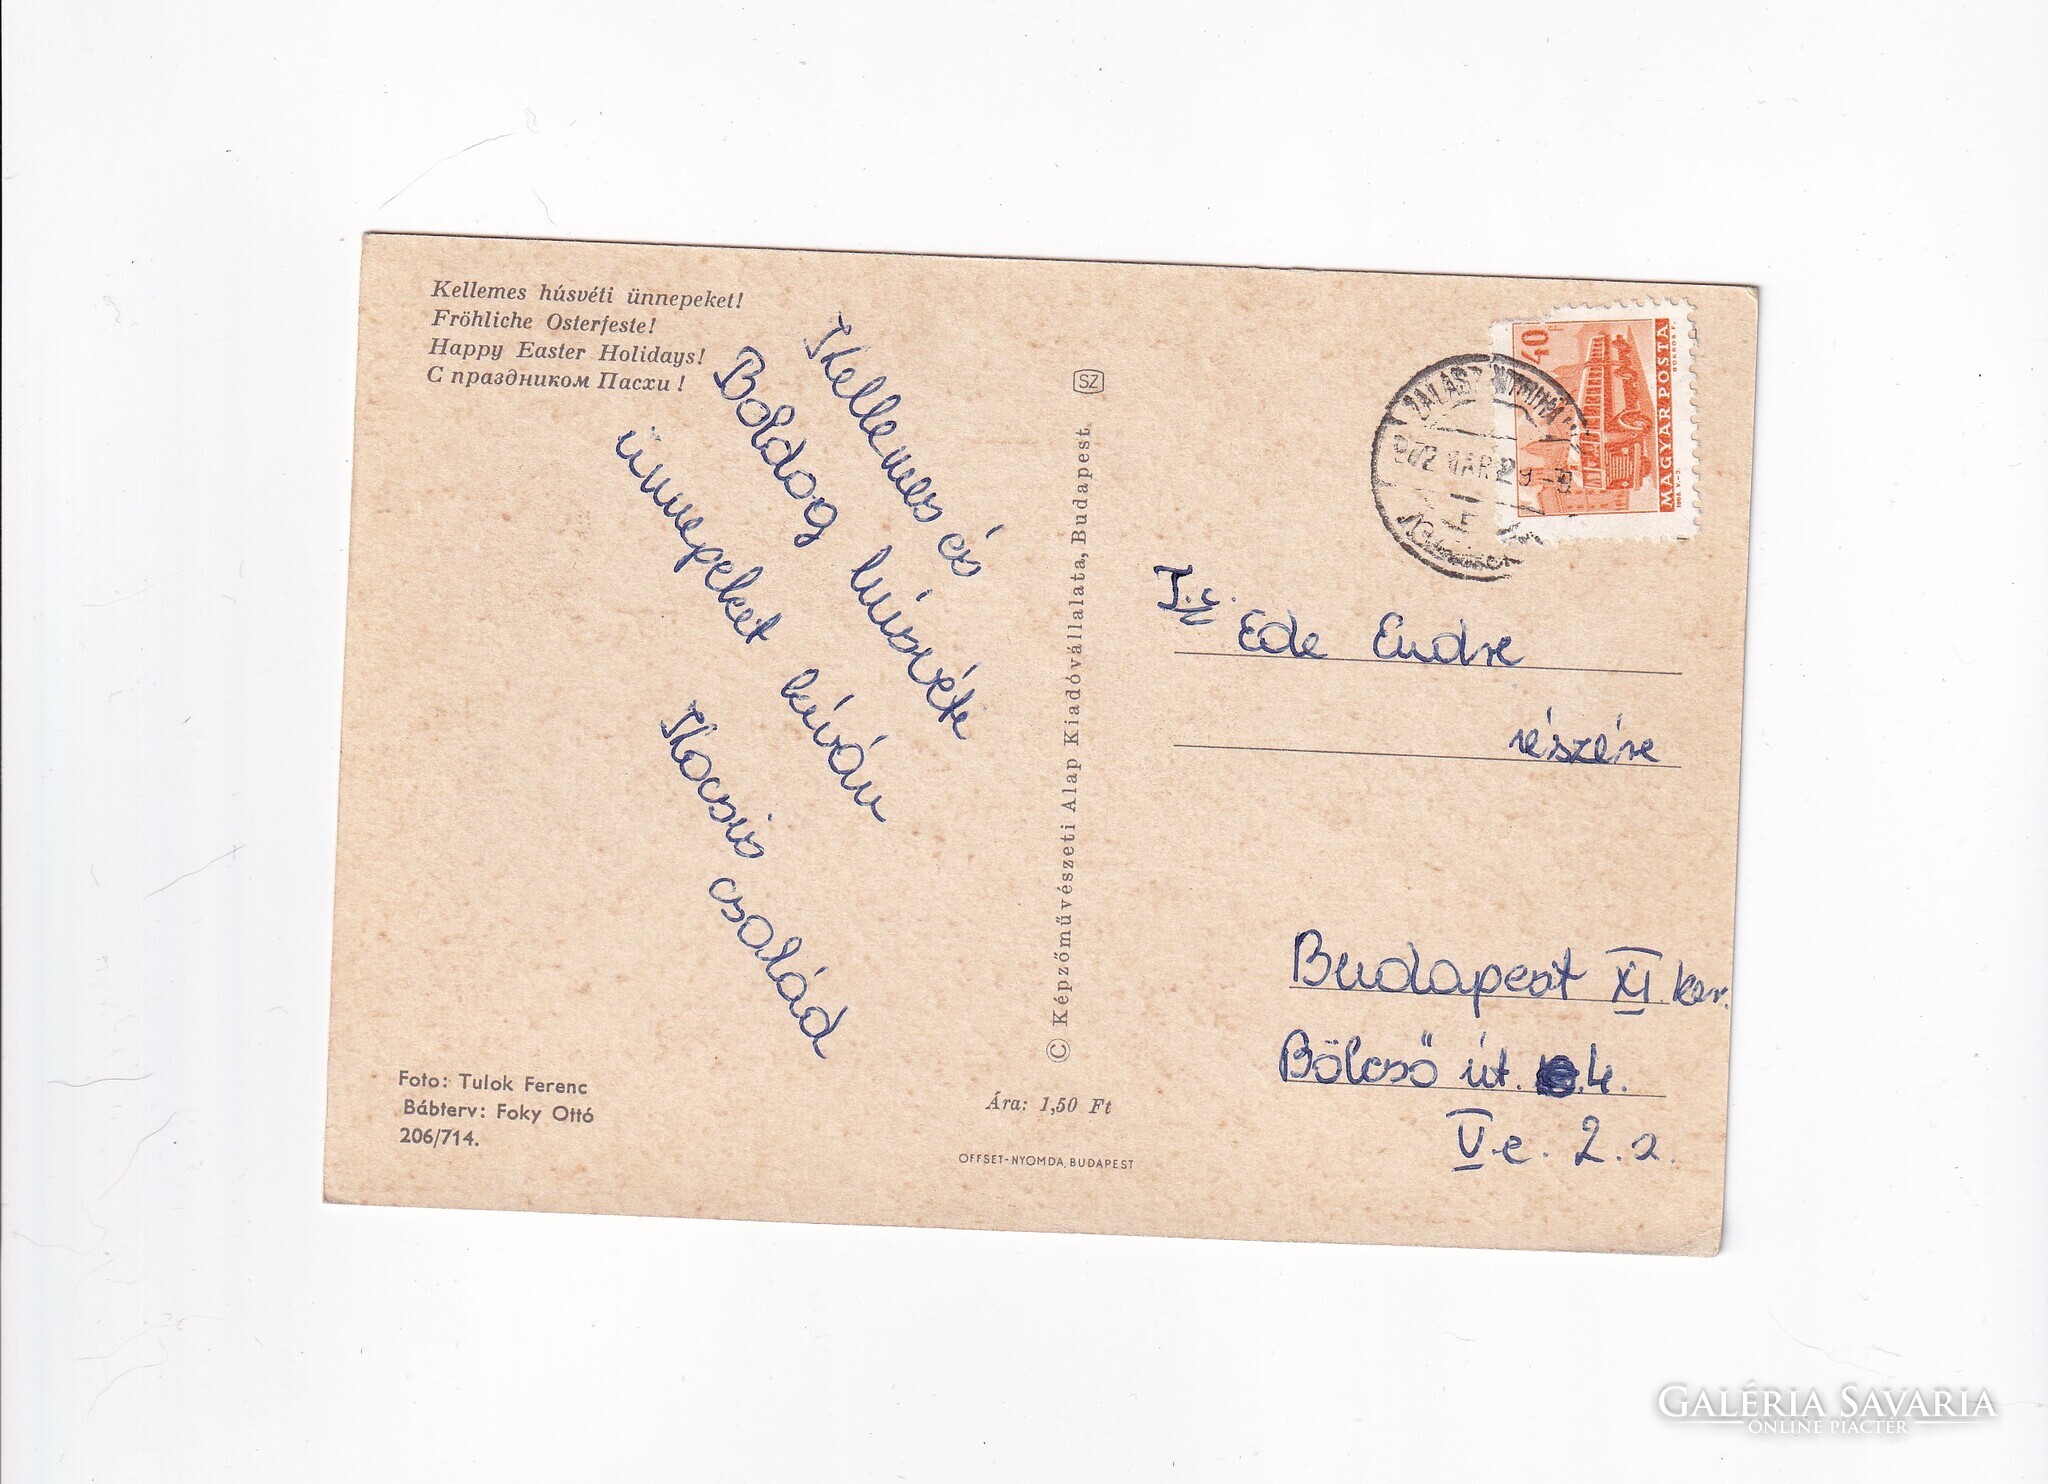 Kellemes húsvéti ünnepeket!
Fröhliche Osterfeste!
Happy Easter Holidays!
С праздником Пасхи!
Kellemes és
Boldog húsvéte
ünnepeket kíván
Kocsis család
Foto: Tulok Ferenc
Bábterv: Foky Ottó
206/714.
SZ
© Képzőművészeti Alap Kiadóvállalata, Budapest
Ára: 1,50 Ft
OFFSET-NYOMDA, BUDAPEST
40
MAGYAR POSTA
972 MAR 29-9
Ede Endre
részére
Budapest XI. ker.
Bölcső út. 4.
V. e. 2. a.
GALÉRIA SAVARIA
ONLINE PIACTÉR